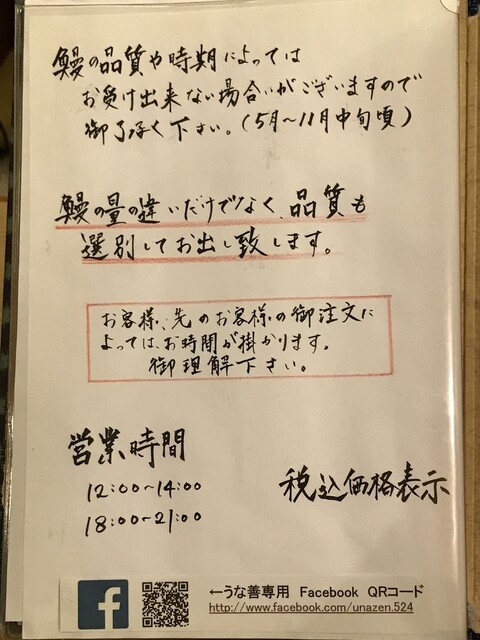 鰻の品質や時期によっては
お受け出来ない場合いがございますので
御了承く下さい。(5月～11月中旬頃)
鰻の量の違いだけでなく、品質も
選別してお出し致します。
お客様、先のお客様の御注文に
よっては、お時間が掛かります。
御理解下さい。
営業時間
12:00～14:00
18:00～21:00
税込価格表示
←うな善専用 Facebook QRコード
http://www.facebook.com/unazen.524